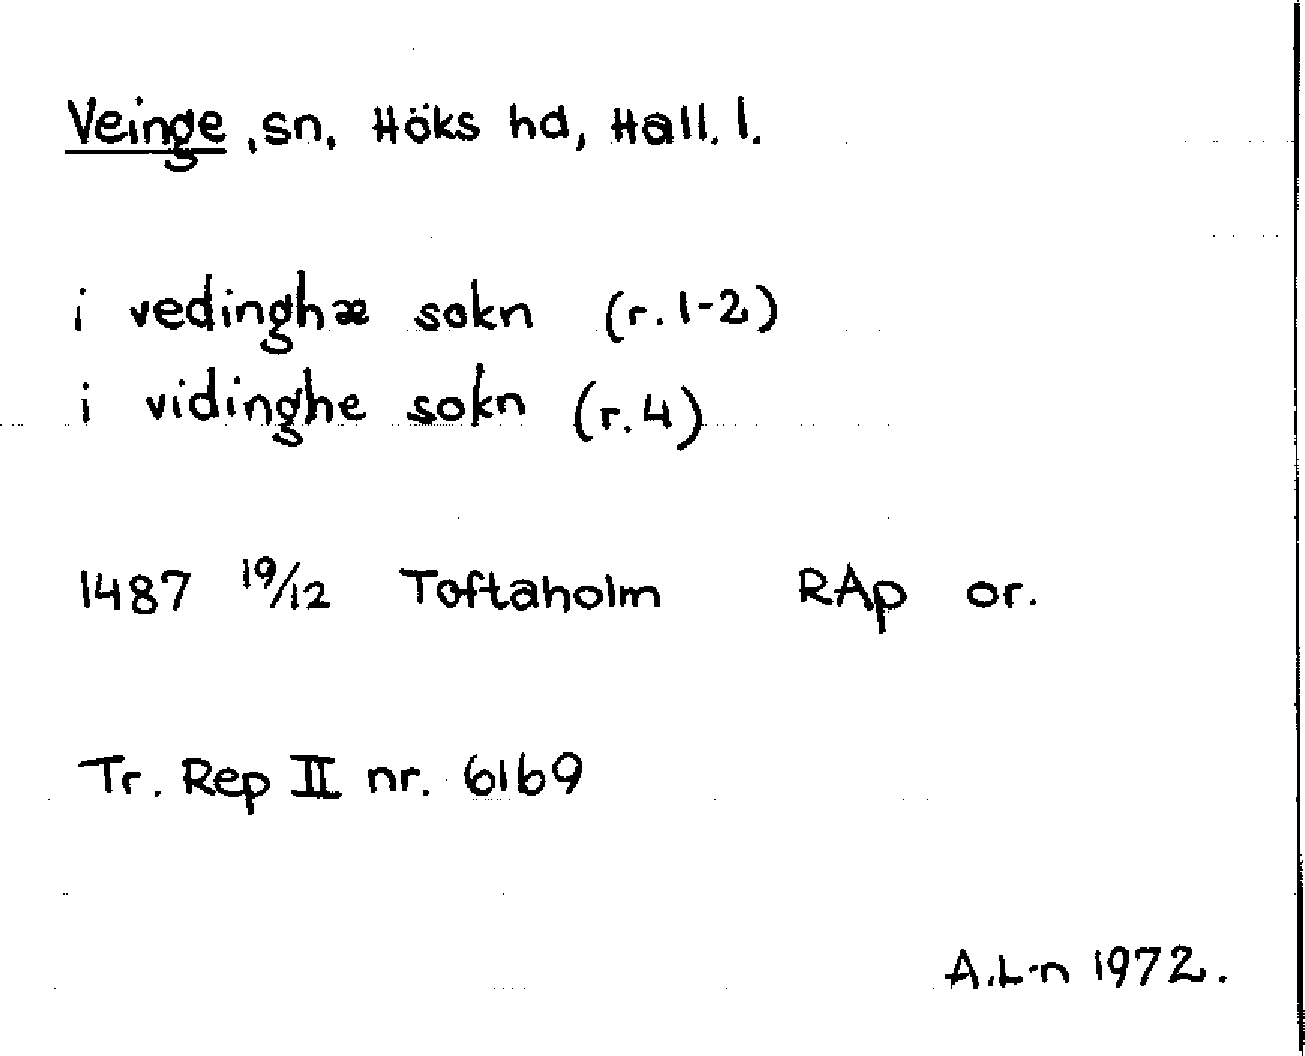 Veinge, sn, Höks hd, Hall. l.
i vedinghæ sokn (r. 1-2)
i vidinghe sokn (r. 4)
1487 19/12 Toftaholm RAp or.
Tr. Rep II nr. 6169
A. L-n 1972.